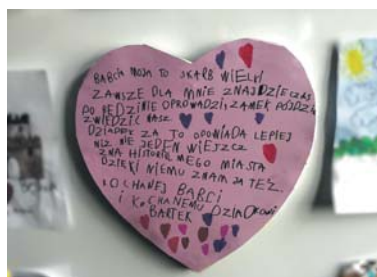 BABCIA MOJA TO SKARB WIELKI
ZAWSZE DLA MNIE ZNAJDZIE CZAS
PO BĘDZINIE OPROWADZI, ZAMEK PÓJDZIE
ZWIEDZIĆ NASZ.
DZIADEK ZA TO OPOWIADA LEPIEJ
NIŻ NIE JEDEN WIESZCZ
ZNA HISTORIE MEGO MIASTA
DZIĘKI NIEMU ZNAM JĄ TEŻ.
KOCHANEJ BABCI
I KOCHANEMU
BARTEK DZIADKOWI